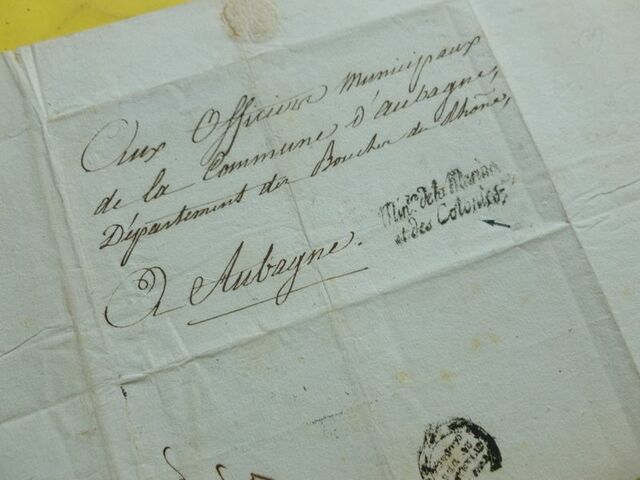 Aux Officiers Municipaux
de la Commune d'Aubagne,
Département des Bouches du Rhône,
A Aubagne.
Min.re de la Marine
et des Colonies